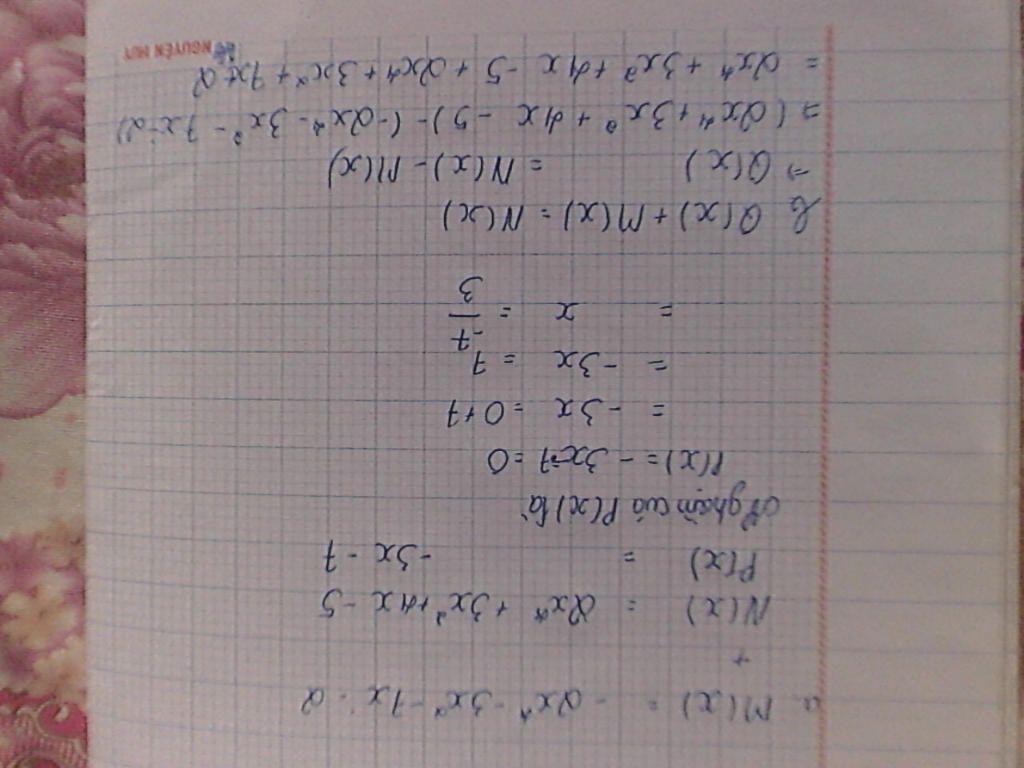 a. M(x) = - 2x⁴ - 3x² - 7x - 2
+
N(x) = 2x⁴ + 3x² + 4x - 5
P(x) = -3x - 7
Nghiệm của P(x) là
P(x) = - 3x - 7 = 0
= - 3x = 0 + 7
= - 3x = 7
= x = -7/3
b. Q(x) + M(x) = N(x)
→ Q(x) = N(x) - M(x)
= (2x⁴ + 3x² + 4x - 5) - (-2x⁴ - 3x² - 7x - 2)
= 2x⁴ + 3x² + 4x - 5 + 2x⁴ + 3x² + 7x + 2
NGUYÊN HUY